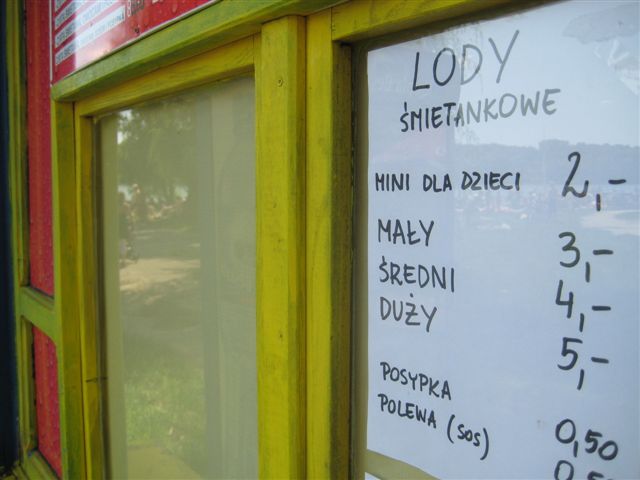 LODY
ŚMIETANKOWE
MINI DLA DZIECI 2,-
MAŁY 3,-
ŚREDNI 4,-
DUŻY 5,-
POSYPKA 0,50
POLEWA (SOS)